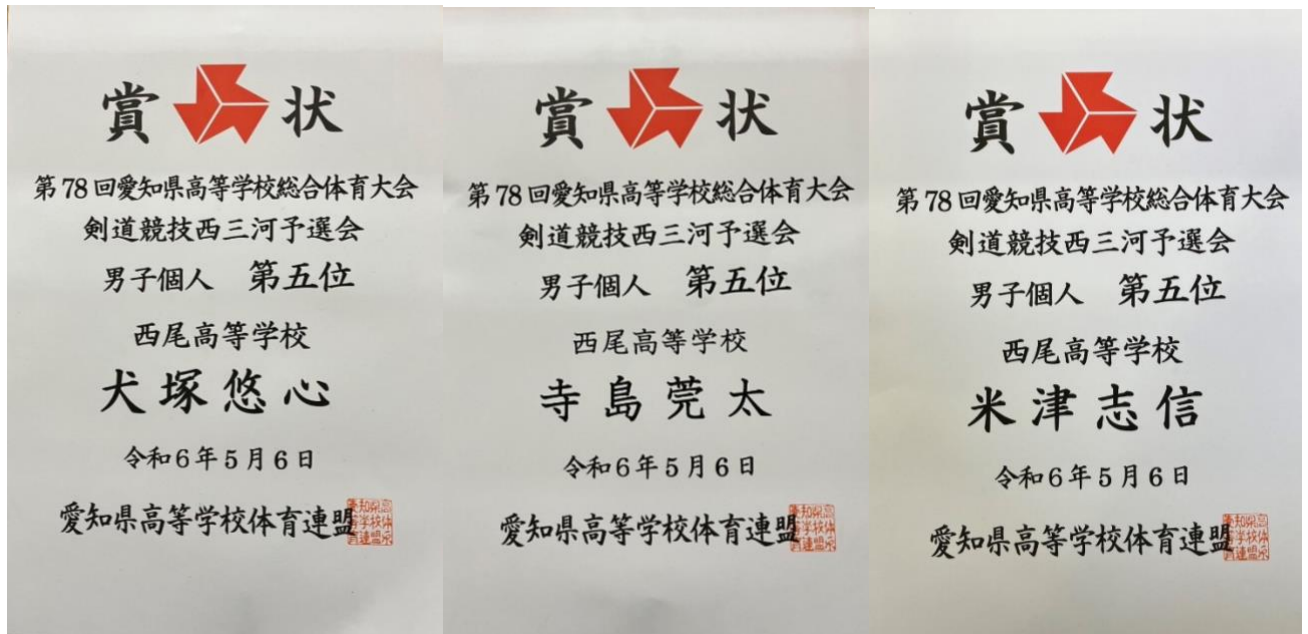 賞状
第78回愛知県高等学校総合体育大会
剣道競技西三河予選会
男子個人 第五位
西尾高等学校
犬塚悠心
令和6年5月6日
愛知県高等学校体育連盟
賞状
第78回愛知県高等学校総合体育大会
剣道競技西三河予選会
男子個人 第五位
西尾高等学校
寺島莞太
令和6年5月6日
愛知県高等学校体育連盟
賞状
第78回愛知県高等学校総合体育大会
剣道競技西三河予選会
男子個人 第五位
西尾高等学校
米津志信
令和6年5月6日
愛知県高等学校体育連盟